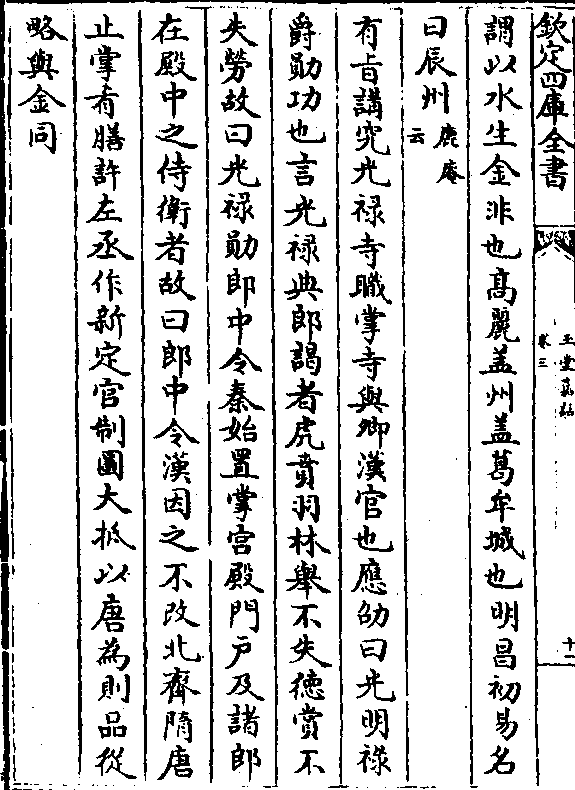 欽定四庫全書
玉堂嘉話
卷三
十一
謂以水生金非也髙麗盖州盖葛牟城也明昌初易名
曰辰州鹿庵云
有旨講究光禄寺職掌寺與卿漢官也應劭曰光明禄
爵勛功也言光禄典郎謁者虎賁羽林舉不失徳賞不
失勞故曰光禄勛郎中令秦始置掌宫殿門户及諸郎
在殿中之侍衛者故曰郎中令漢因之不改北齊隋唐
止掌肴膳許左丞作新定官制圖大抵以唐為則品從
略與金同